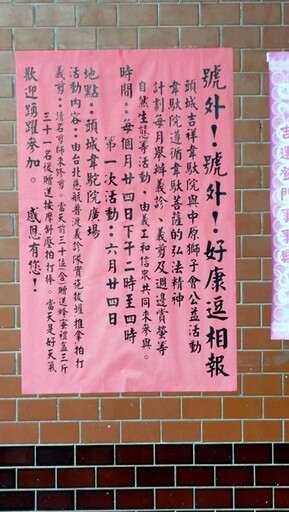 號外!號外!好康逗相報
頭城吉祥韋馱院與中原獅子會公益活動
韋馱院遵循韋馱菩薩的弘法精神
計劃每月舉辦義診、義剪及週邊賞螢等
自然生態等活動,由義工和信眾共同來參與。
時間:每個月廿四日下午二時至四時
第一次活動:六月廿四日
地點:頭城韋馱院廣場
活動內容:由台北慈航普渡義診隊實施拔罐推拿拍打
義剪:請名剪師來修剪。當天前三十位(含)贈送蜂蜜禮盒三斤
三十一名後贈送按摩舒壓拍打棒。當天是好天氣
歡迎踴躍參加。 感恩有您!
吉運登門事事